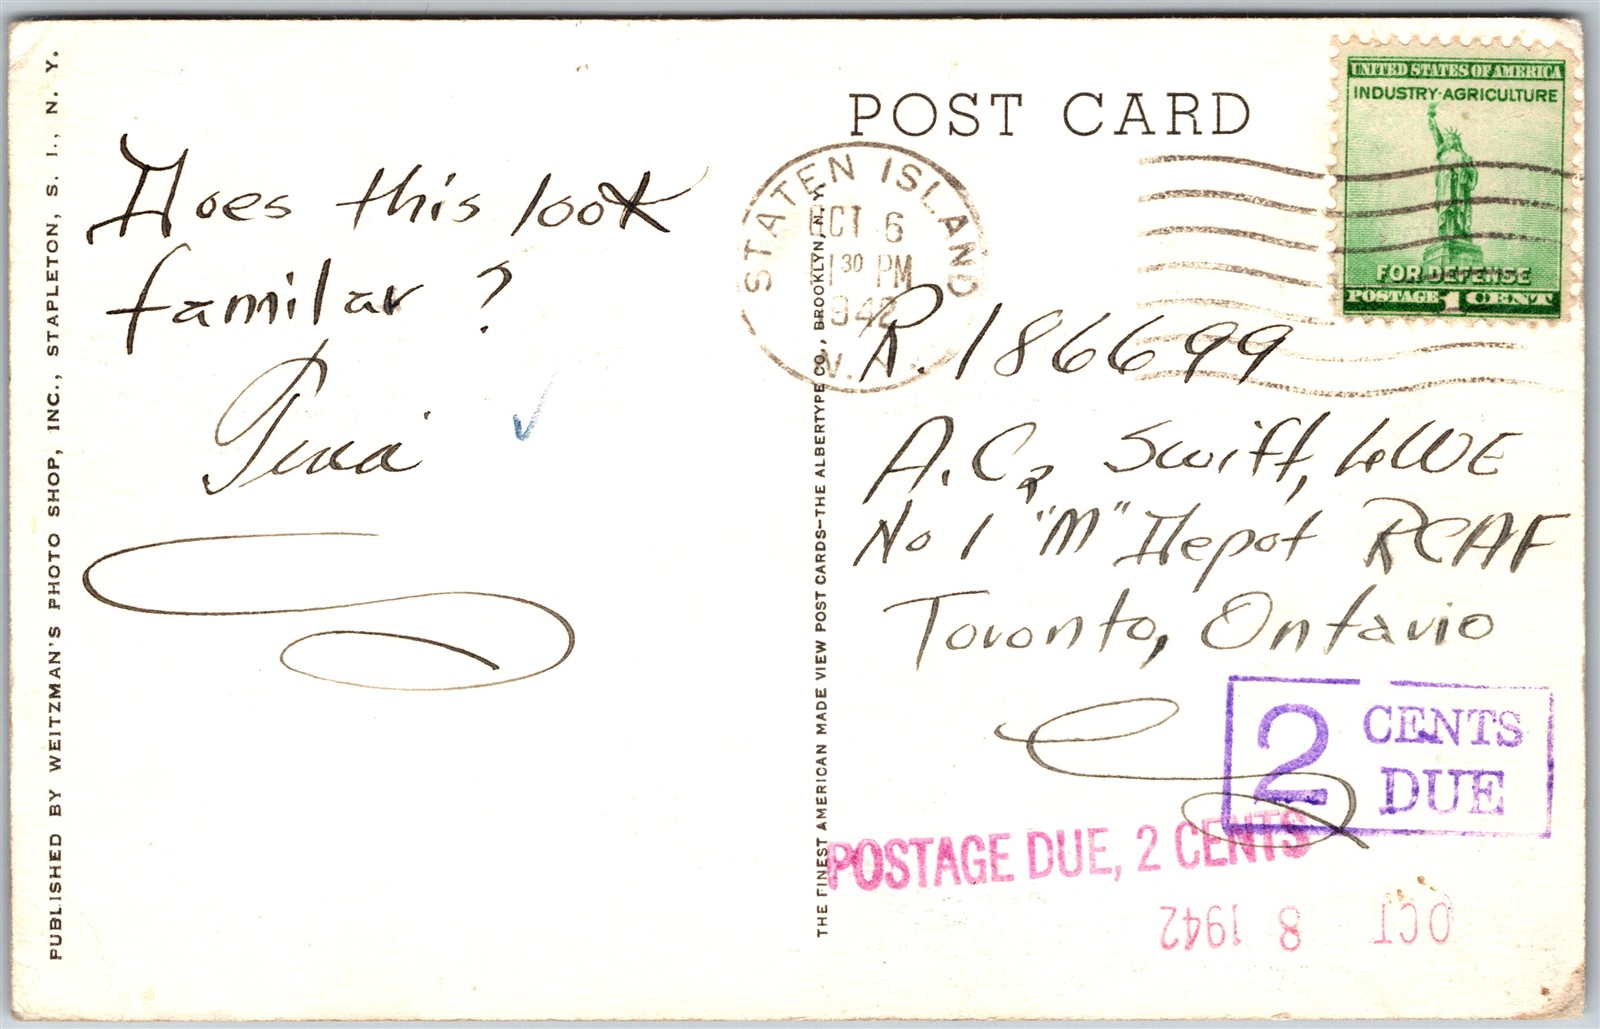 PUBLISHED BY WEITZMAN'S PHOTO SHOP, INC., STAPLETON, S. I., N. Y.
Does this look
familiar ?
THE FINEST AMERICAN MADE VIEW POST CARDS–THE ALBERTYPE CO., BROOKLYN, N. Y.
POST CARD
UNITED STATES OF AMERICA
INDUSTRY·AGRICULTURE
FOR DEFENSE
POSTAGE 1 CENT
STATEN ISLAND
OCT 6
1 30 PM
1942
N.Y.
R. 186699
A.C. Swift,
No 1 "M" Depot RCAF
Toronto, Ontario
2 CENTS
DUE
POSTAGE DUE, 2 CENTS
OCT 8 1942